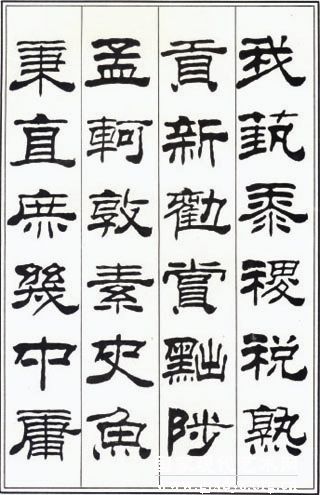 我蓺黍稷稅熟
貢新勸賞黜陟
孟軻敦素史魚
秉直庶幾中庸